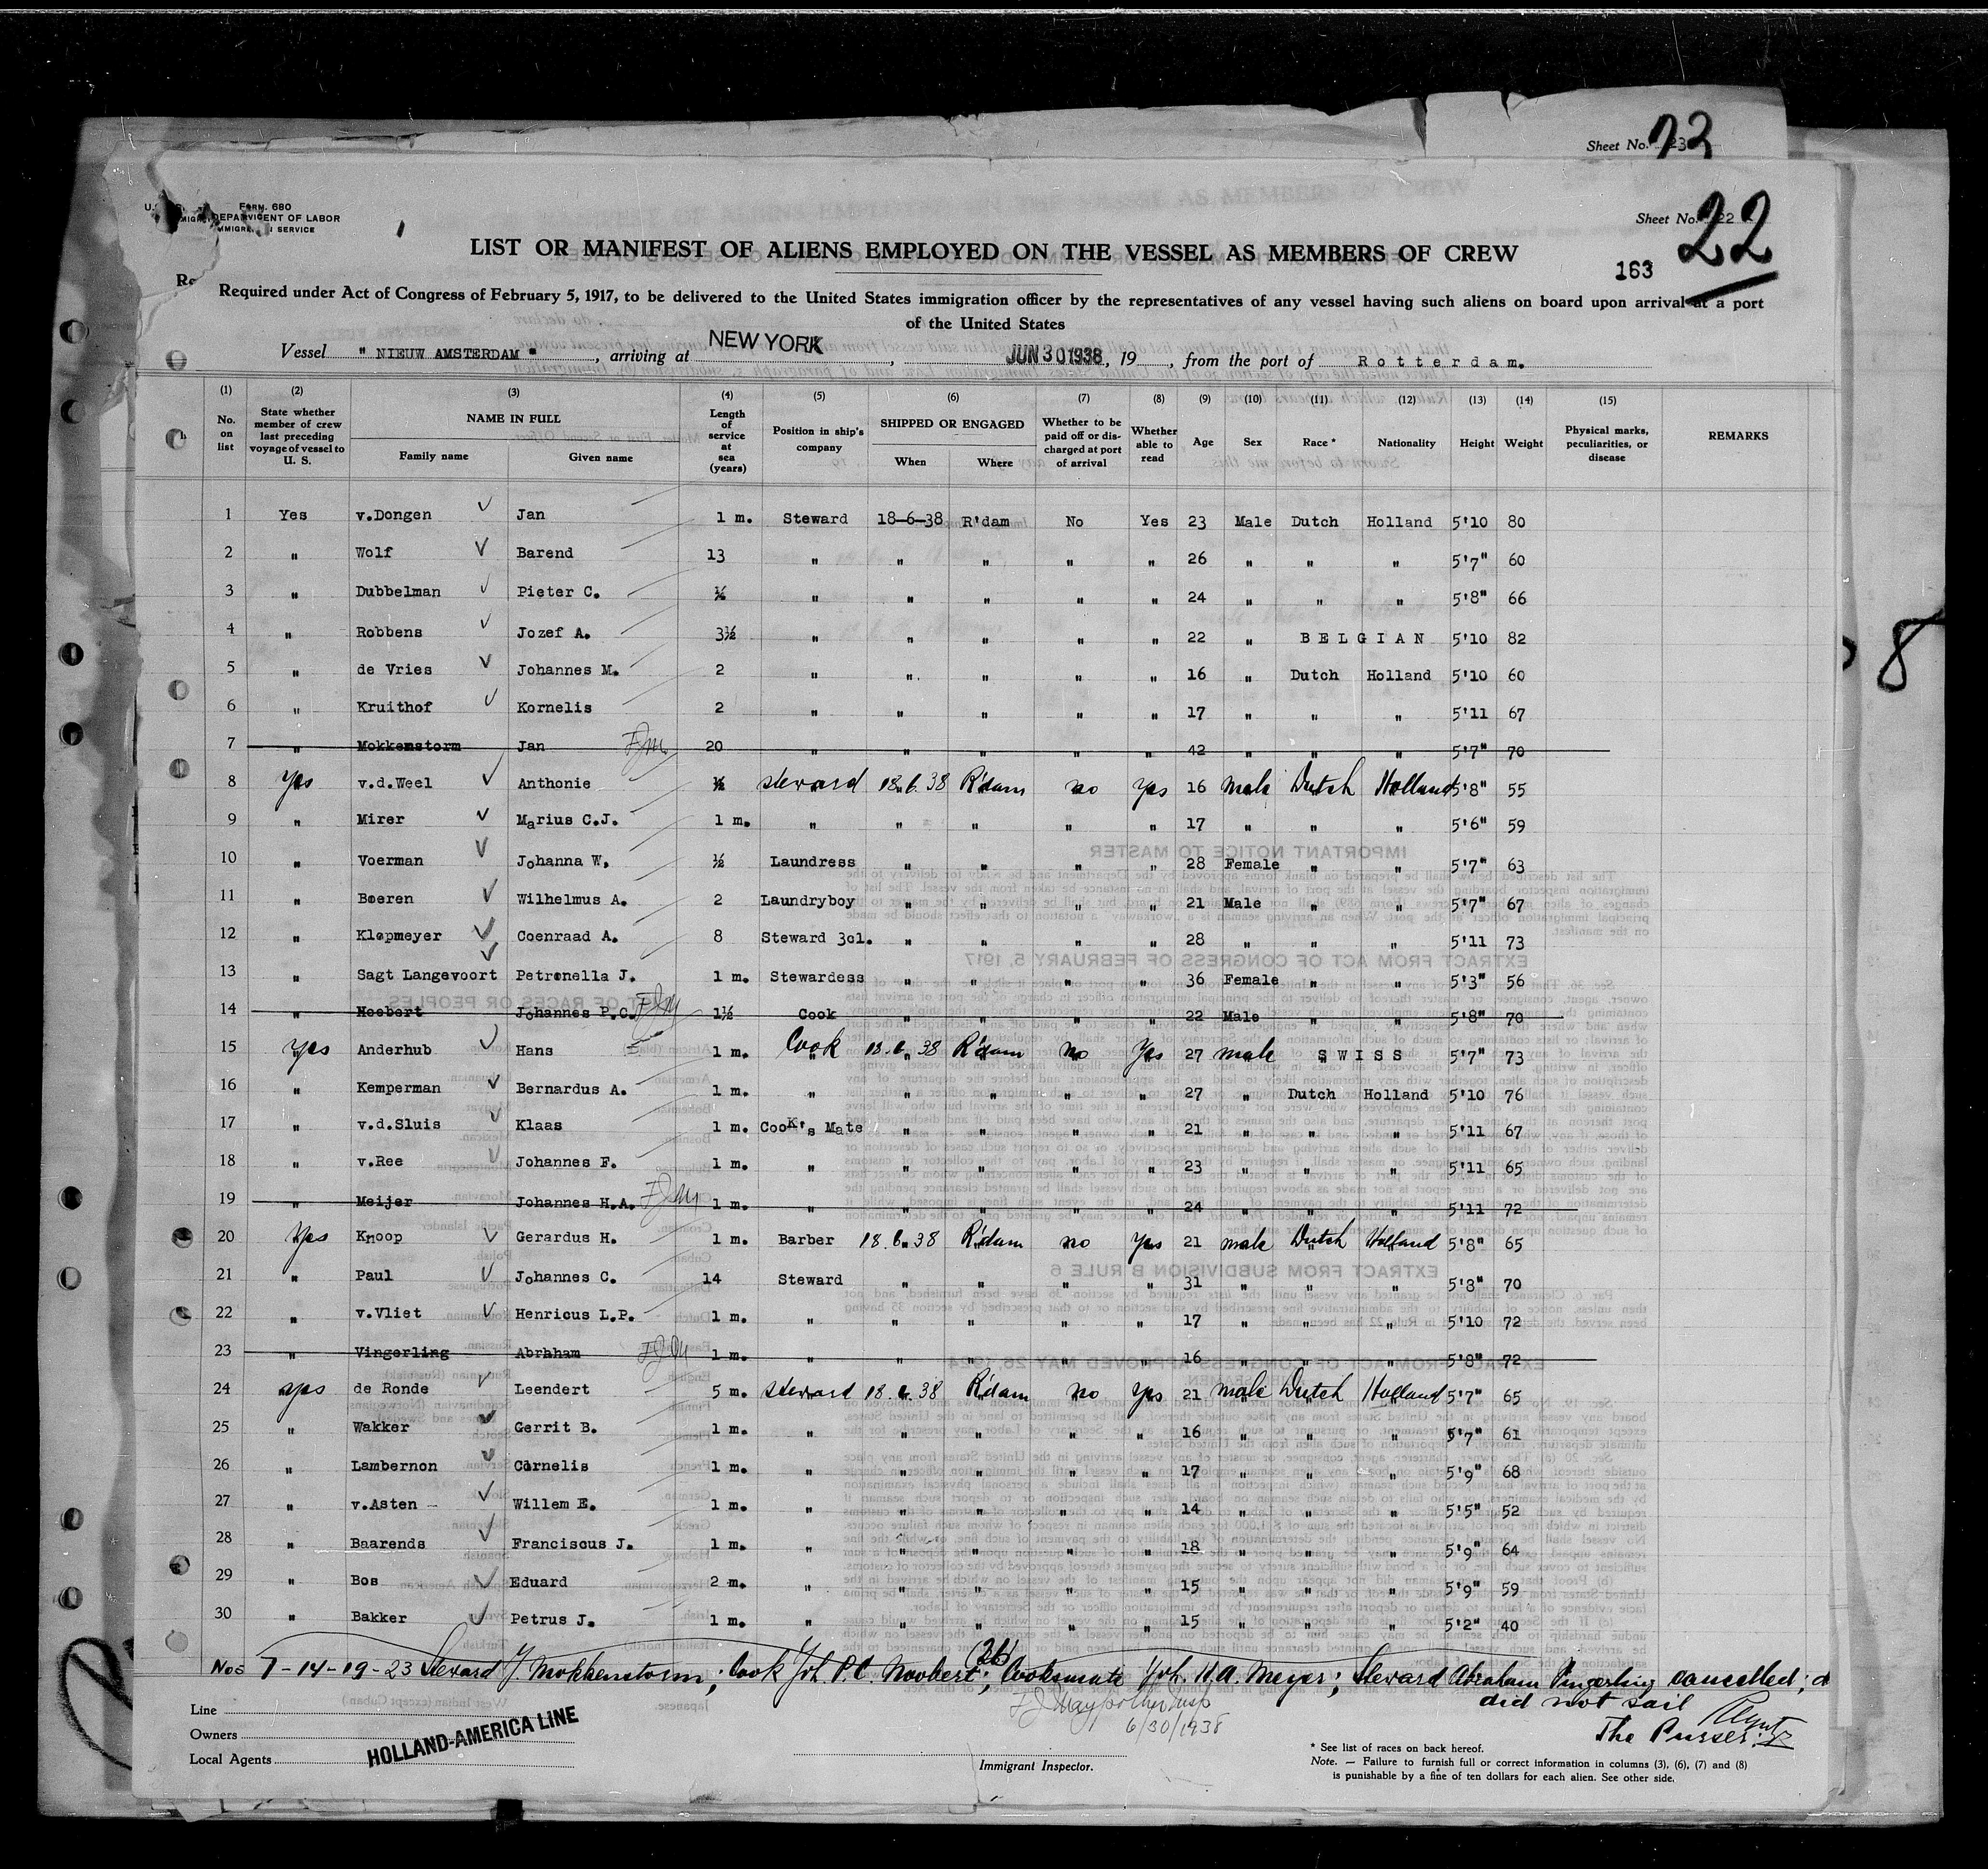 Sheet No. 23
23
FORM. 680
DEPARTMENT OF LABOR
IMMIGRATION SERVICE
Sheet No. 22
22
LIST OR MANIFEST OF ALIENS EMPLOYED ON THE VESSEL AS MEMBERS OF CREW
163
Required under Act of Congress of February 5, 1917, to be delivered to the United States immigration officer by the representatives of any vessel having such aliens on board upon arrival at a port
of the United States
Vessel " NIEUW AMSTERDAM ", arriving at NEW YORK, JUN 30 1938, 19 , from the port of Rotterdam.
(1) (2) (3) (4) (5) (6) (7) (8) (9) (10) (11) (12) (13) (14) (15)
No. on list State whether member of crew last preceding voyage of vessel to U. S. NAME IN FULL Family name Given name Length of service at sea (years) Position in ship's company SHIPPED OR ENGAGED When Where Whether to be paid off or discharged at port of arrival Whether able to read Age Sex Race * Nationality Height Weight Physical marks, peculiarities, or disease REMARKS
1 Yes v.Dongen Jan 1 m. Steward 18-6-38 R'dam No Yes 23 Male Dutch Holland 5'10 80
2 " Wolf Barend 13 " " " " " 26 " " " 5'7" 60
3 " Dubbelman Pieter C. ½ " " " " " 24 " " " 5'8" 66
4 " Robbens Jozef A. 3½ " " " " " 22 " BELGIAN 5'10 82
5 " de Vries Johannes M. 2 " " " " " 16 " Dutch Holland 5'10 60
6 " Kruithof Kornelis 2 " " " " " 17 " " " 5'11 67
7 " Mokkenstorm Jan 20 " " " " " 42 " " " 5'7" 70
8 Yes v.d.Weel Anthonie ½ steward 18.6.38 R'dam no Yes 16 male Dutch Holland 5'8" 55
9 " Mirer Marius C.J. 1 m. " " " " " 17 " " " 5'6" 59
10 " Voerman Johanna W. ½ Laundress " " " " 28 Female " " 5'7" 63
11 " Boeren Wilhelmus A. 2 Laundryboy " " " " 21 Male " " 5'7" 67
12 " Klopmeyer Coenraad A. 8 Steward 3cl. " " " " 28 " " " 5'11 73
13 " Sagt Langevoort Petronella J. 1 m. Stewardess " " " " 36 Female " " 5'3" 56
14 " Noobert Johannes P.C. 1½ Cook " " " " 22 Male " " 5'8" 70
15 Yes Anderhub Hans 1 m. Cook 18.6.38 R'dam no Yes 27 male SWISS 5'7" 73
16 " Kemperman Bernardus A. 1 m. " " " " " 27 " Dutch Holland 5'10 76
17 " v.d.Sluis Klaas 1 m. Cook's Mate " " " " 21 " " " 5'11 67
18 " v.Ree Johannes F. 1 m. " " " " " 23 " " " 5'11 65
19 " Meijer Johannes H.A. 1 m. " " " " " 24 " " " 5'11 72
20 Yes Knoop Gerardus H. 1 m. Barber 18.6.38 R'dam no Yes 21 male Dutch Holland 5'8" 65
21 " Paul Johannes C. 14 Steward " " " " 31 " " " 5'8" 70
22 " v.Vliet Henricus L.P. 1 m. " " " " " 17 " " " 5'10 72
23 " Vingerling Abrhham 1 m. " " " " " 16 " " " 5'8" 72
24 yes de Ronde Leendert 5 m. steward 18.6.38 R'dam no Yes 21 male Dutch Holland 5'7" 65
25 " Wakker Gerrit B. 1 m. " " " " " 16 " " " 5'7" 61
26 " Lambernon Cornelis 1 m. " " " " " 17 " " " 5'9" 68
27 " v.Asten Willem E. 1 m. " " " " " 14 " " " 5'5" 52
28 " Baarends Franciscus J. 1 m. " " " " " 18 " " " 5'9" 64
29 " Bos Eduard 2 m. " " " " " 15 " " " 5'9" 59
30 " Bakker Petrus J. 1 m. " " " " " 15 " " " 5'2" 40
8
26
Nos 7-14-19-23 Steward J. Mokkenstorm; Cook Joh. P.C. Noobert; Cooksmate Joh. H.A. Meyer; Steward Abraham Vingerling cancelled;
did not sail
The Purser.
6/30/1938
Line
Owners
Local Agents
HOLLAND-AMERICA LINE
Immigrant Inspector.
* See list of races on back hereof.
Note. — Failure to furnish full or correct information in columns (3), (6), (7) and (8)
is punishable by a fine of ten dollars for each alien. See other side.